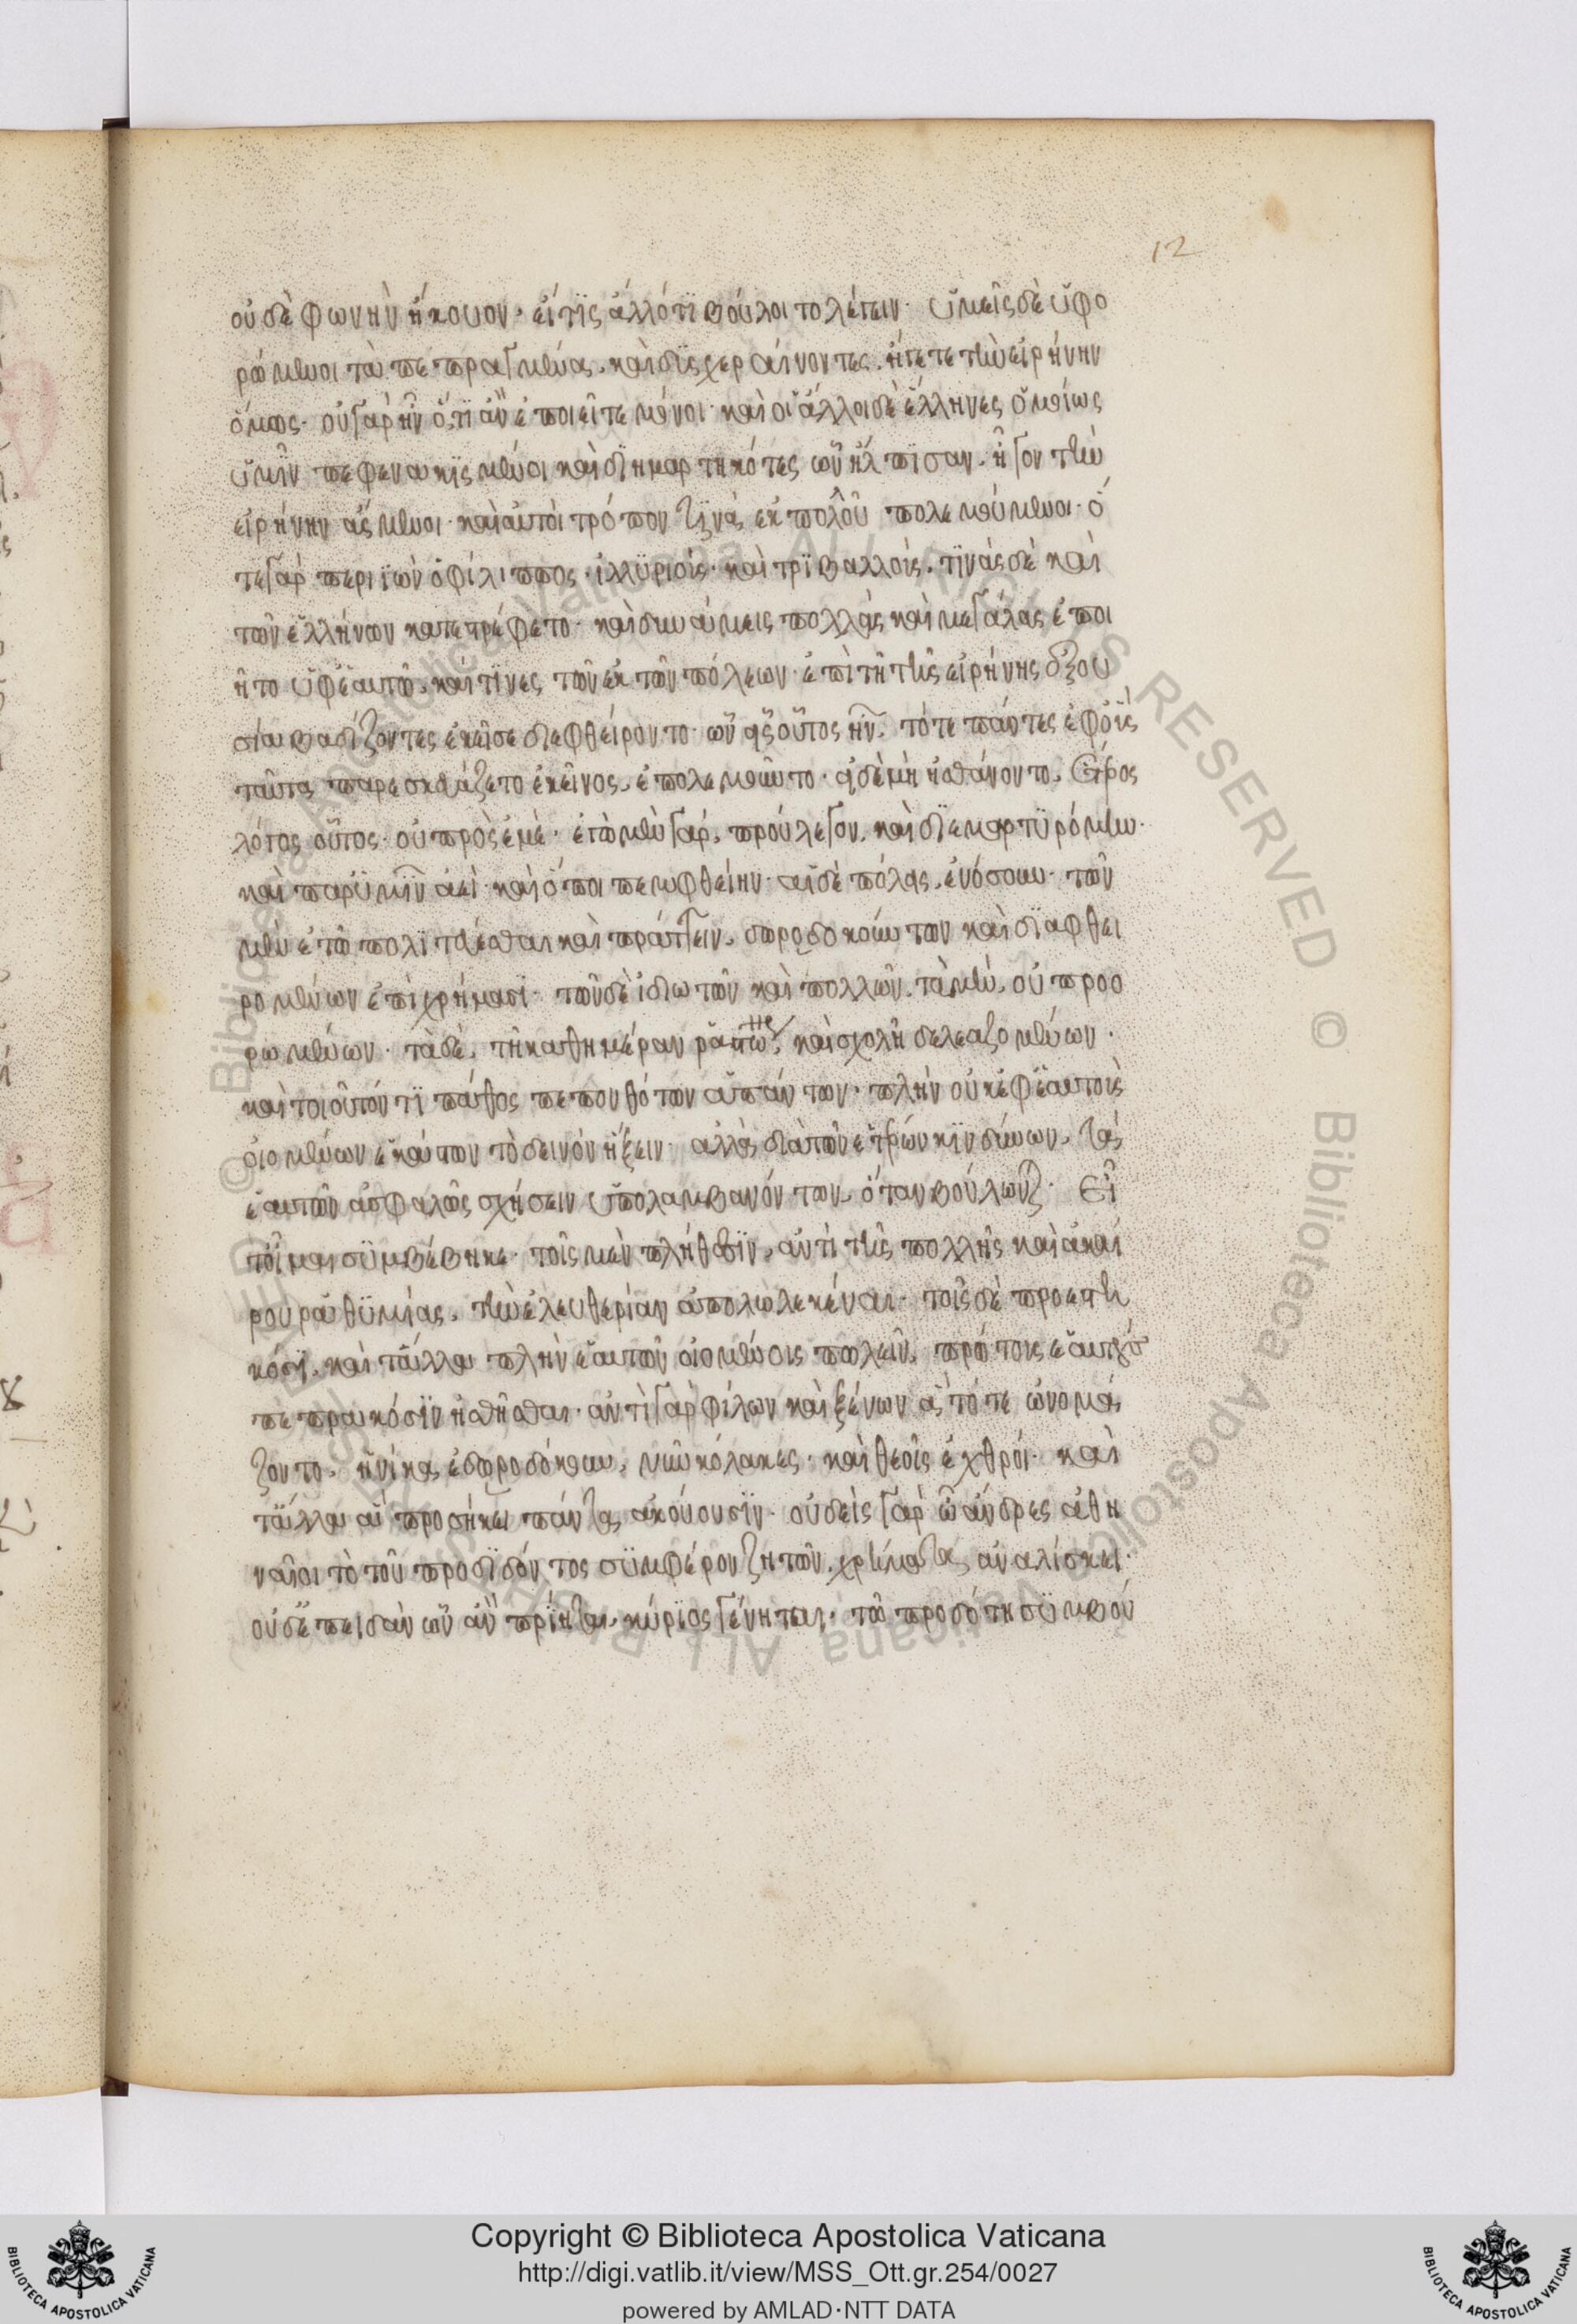 12
οὐδὲ φωνὴν ἤκουον· εἴ τϊς ἄλλό τϊ βούλοιτο λέγειν· ὑμεῖς δὲ ὑφο
ρώμενοι τὰ πεπραγμένα, καὶ δυσχεραίνοντες, ἤγετε τὴν εἰρήνην
ὅμως· οὐ γὰρ ἦν ὅ,τϊ ἂν ἐποιεῖτε μόνοι· καὶ οἱ ἄλλοι δὲ ἕλληνες ὁμοίως
ὑμῖν πεφενακισμένοι καὶ διημαρτηκότες ὧν ἤλπισαν, ἦγον τὴν
εἰρήνην ἄσμενοι· καὶ αὐτοὶ τρόπον τινὰ ἐκ πολλοῦ πολεμούμενοι· ὅ
τε γὰρ περιϊὼν ὁ φίλιππος· ἰλλυριοὺς· καὶ τριβαλλοὺς, τινὰς δὲ καὶ
τῶν ἑλλήνων κατεστρέφετο· καὶ δυνάμεις πολλὰς καὶ μεγάλας ἐποι
ῆτο ὑφ' ἑαυτῶ, καί τινες τῶν ἐκ τῶν πόλεων· ἐπὶ τῆ τῆς εἰρήνης ἐξου
σία βαδίζοντες ἐκεῖσε διεφθείροντο· ὧν εἷς οὗτος ἦν, τότε πάντες ἐφ' οὓς
ταῦτα παρεσκευάζετο ἐκεῖνος, ἐπολεμοῦντο· εἰ δὲ μὴ ἠσθάνοντο, ἕτερος
λόγος οὗτος· οὐ πρὸς ἐμέ· ἐγὼ μὲν γάρ, προύλεγον, καὶ διεμαρτυρόμην·
καὶ παρ' ὑμῖν ἀεὶ· καὶ ὅποι πεμφθείην· αἱ δὲ πόλεις, ἐνόσουν· τῶν
μὲν ἐν τῶ πολιτεύεσθαι καὶ πράττειν, δωροδοκούντων καὶ διαφθει
ρομένων ἐπὶ χρήμασι· τῶν δὲ ἰδιωτῶν καὶ πολλῶν, τὰ μὲν, οὐ προο
ρωμένων· τὰ δὲ, τῆ καθημέραν ῥαστώνη, καὶ σχολῆ δελεαζομένων·
καὶ τοιοῦτόν τι πάθος πεπονθότων ἁπάντων· πλὴν οὐκ ἐφ' ἑαυτοὺς
οἰομένων ἑκάστων τὸ δεινὸν ἥξειν· ἀλλὰ διὰ τῶν ἑτέρων κινδύνων, τὰ
ἑαυτῶν ἀσφαλῶς σχήσειν ὑπολαμβανόντων, ὅταν βούλωντ· Εἶ
τ' οἶμαι συμβέβηκε· τοῖς μὲν πλήθεσϊν, ἀντὶ τῆς πολλῆς καὶ ἀκαί
ρου ῥαθυμίας, τὴν ἐλευθερίαν ἀπολωλεκέναι· τοῖς δὲ προεστη
κόσι, καὶ τἄλλα πλὴν ἑαυτῶν οἰομένοις πωλεῖν, πρώτους ἑαυτοὺς
πεπρακόσιν ἠσθῆσθαι· ἀντὶ γὰρ φίλων καὶ ξένων ἃ τότε ὠνομά
ζοντο, ἡνίκα ἐδωροδόκουν, νῦν κόλακες· καὶ θεοῖς ἐχθροί· καὶ
τἄλλα ἃ προσήκει πάντα ἀκούουσϊν· οὐδεὶς γὰρ ὦ ἄνδρες ἀθη
ναῖοι τὸ τοῦ προδιδόντος συμφέρον ζητῶν, χρήματα ἀναλίσκει·
οὐδ' ἐπειδὰν ὧν ἂν πρίηται, κύριος γένηται· τῶ προδότη συμβού
Copyright © Biblioteca Apostolica Vaticana
http://digi.vatlib.it/view/MSS_Ott.gr.254/0027
powered by AMLAD·NTT DATA